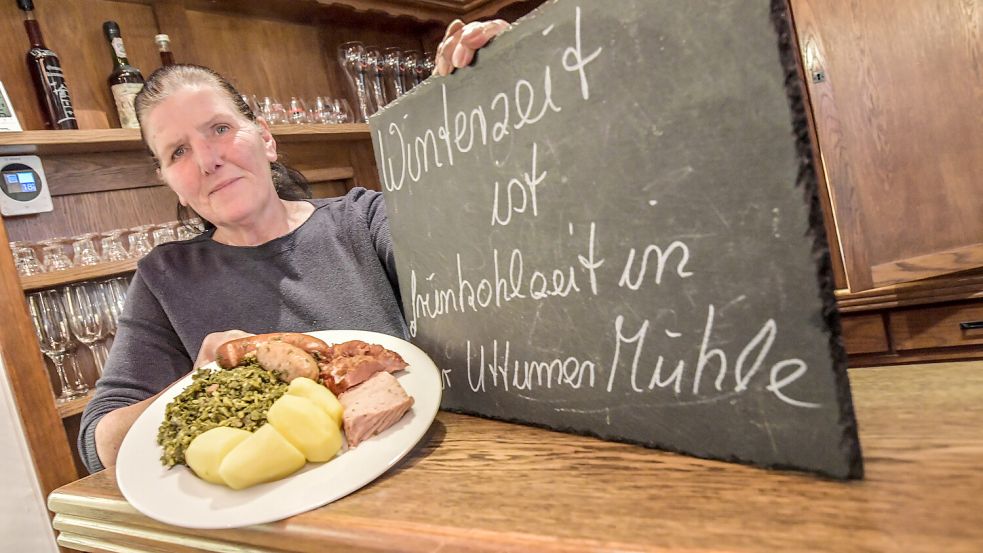 Winterzeit
ist
Grünkohlzeit in
Uttumer Mühle